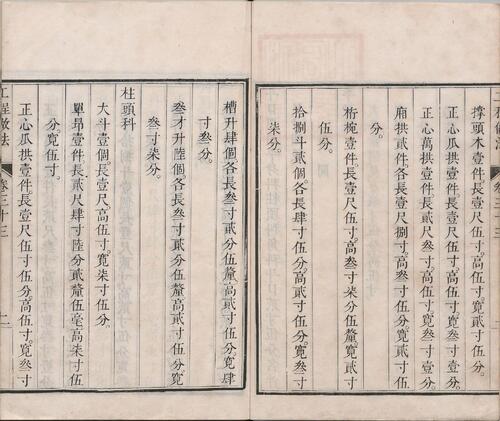 撑頭木壹件長壹尺伍寸伍分高伍寸寬貳寸伍分
正心瓜拱壹件長壹尺伍寸伍分高伍寸寬叁寸壹分
正心萬拱壹件長貳尺叁寸高伍寸寬叁寸壹分
廂拱貳件各長壹尺捌寸高叁寸伍分寬貳寸伍
分
桁椀壹件長壹尺伍寸高叁寸柒分伍釐寬貳寸
伍分
拾捌斗貳個各長肆寸伍分高貳寸伍分寬叁寸
柒分
槽升肆個各長叁寸貳分伍釐高貳寸伍分寬肆
寸叁分
叁才升陸個各長叁寸貳分伍釐高貳寸伍分寬
叁寸柒分
柱頭科
大斗壹個長壹尺高伍寸寬柒寸伍分
單昂壹件長貳尺肆寸陸分貳釐伍毫高柒寸伍
分寬伍寸
正心瓜拱壹件長壹尺伍寸伍分高伍寸寬叁寸
工程做法 卷三十三 二